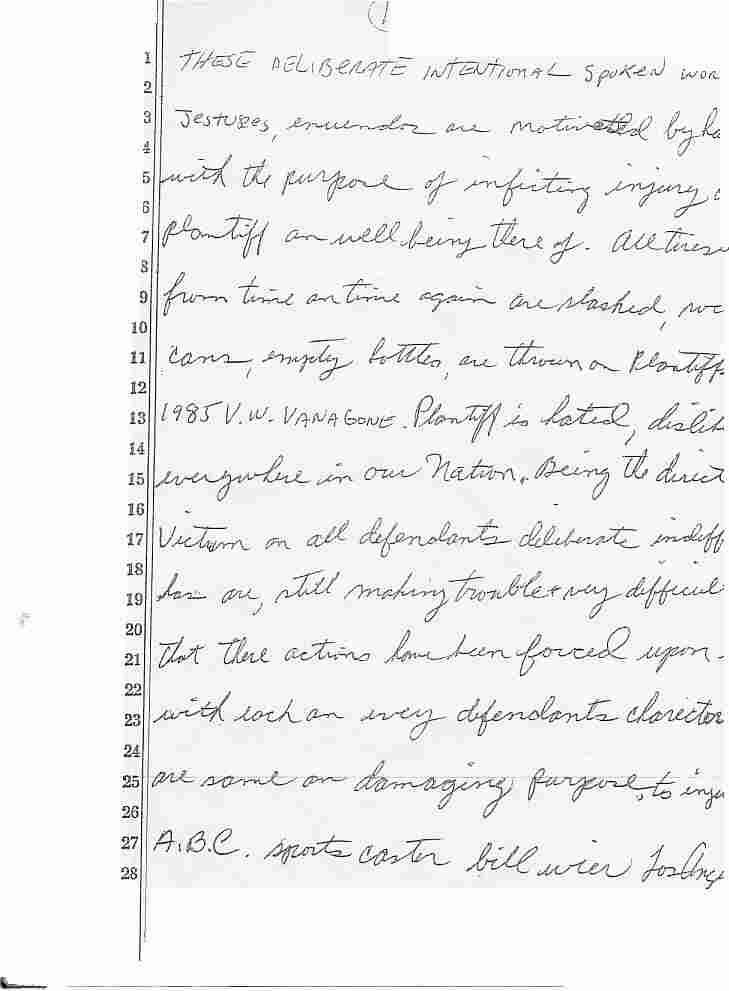 (1
1 THESE DELIBERATE INTENTIONAL SpoKEN WOR
2
3 Jestures, enuendos are motivated by ha
4
5 with the purpose of inficting injury
6
7 Plantiff an well being there of. All tires
8
9 from time an time again are slashed, roc
10
11 cans, empty bottles, are thrown on Plantiffs
12
13 1985 V.W. VANAGONE. Plantiff is hated, dislik
14
15 everywhere in our Nation. Being the direct
16
17 Victum on all defendants deliberate indiff
18
19 has are, still making trouble + very difficul
20
21 that there actions have been forced upon
22
23 with each an every defendants charictor
24
25 are same an damaging purpose, to inju
26
27 A.B.C. sports caster bill wier Los Ange
28